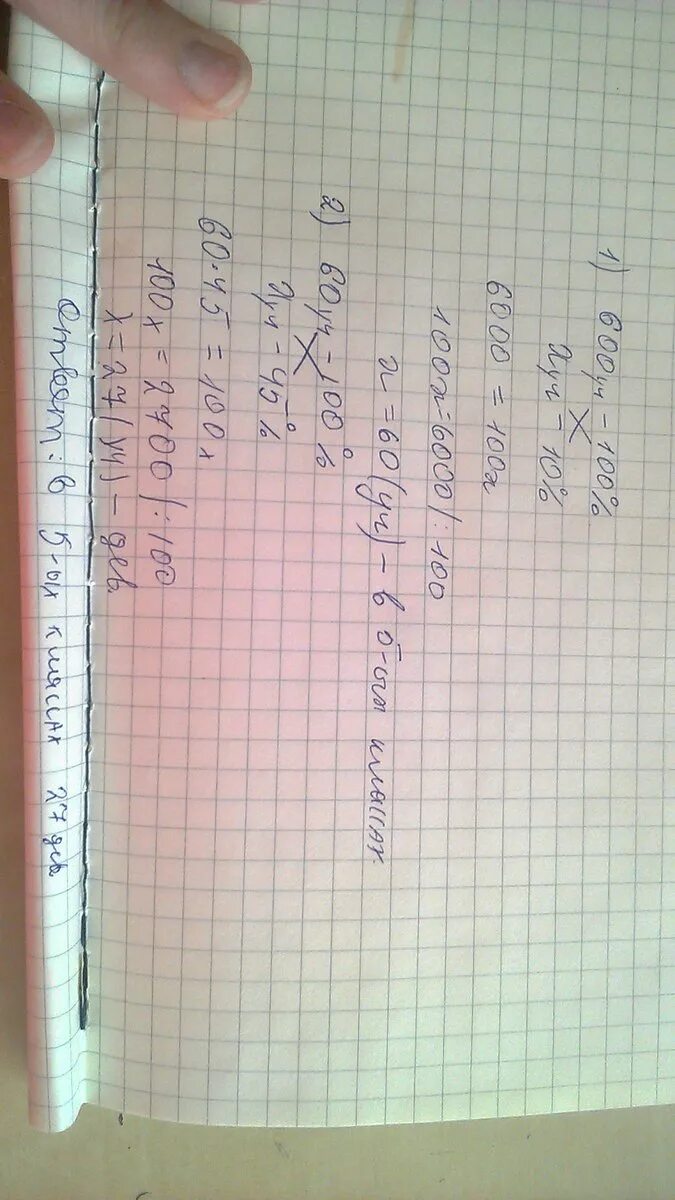 1) 600 уч - 100%
x уч - 10%
6000 = 100x
100x = 6000 | : 100
x = 60 (уч) - в 5-ых классах
2) 60 уч - 100%
x уч - 45%
60 · 45 = 100x
100x = 2700 | : 100
x = 27 (уч) - дев
Ответ: в 5-ых классах 27 дев